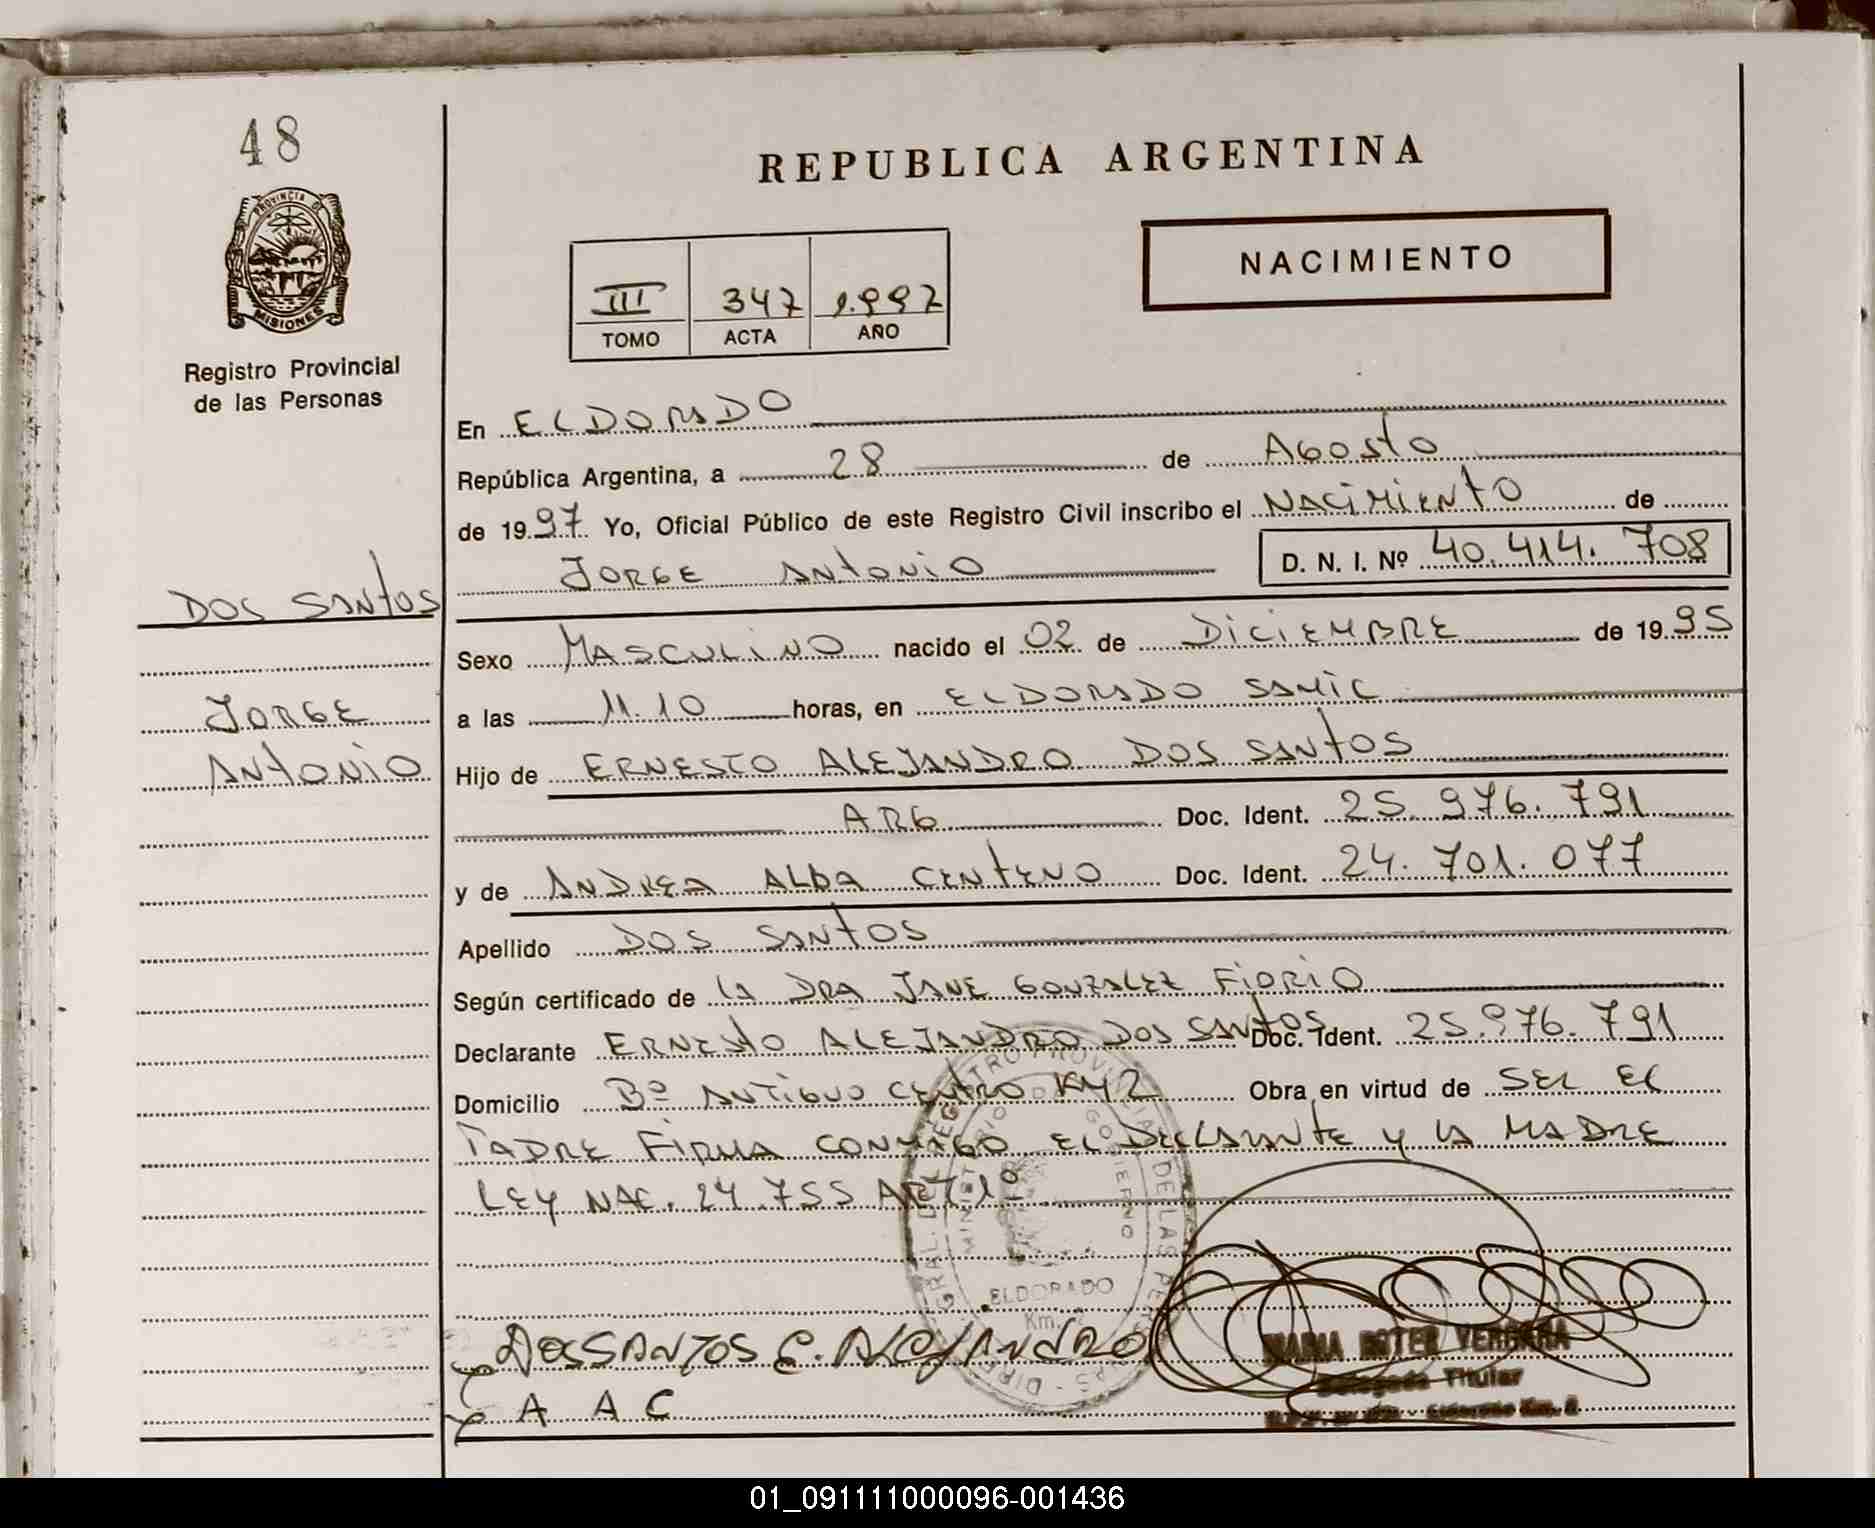 48
PROVINCIA DE
MISIONES
Registro Provincial
de las Personas
REPUBLICA ARGENTINA
NACIMIENTO
III 347 1.997
TOMO ACTA AÑO
En ELDORADO
República Argentina, a 28 de Agosto
de 1997 Yo, Oficial Público de este Registro Civil inscribo el NACIMIENTO de
JORGE ANTONIO D. N. I. Nº 40.414.708
DOS SANTOS
JORGE
ANTONIO
Sexo MASCULINO nacido el 02 de DICIEMBRE de 1995
a las 11.10 horas, en ELDORADO SAMIC
Hijo de ERNESTO ALEJANDRO DOS SANTOS
ARG Doc. Ident. 25.976.791
y de ANDREA ALBA CENTENO Doc. Ident. 24.701.077
Apellido DOS SANTOS
Según certificado de LA DRA JANE GONZALEZ FIORIO
Declarante ERNESTO ALEJANDRO DOS SANTOS Doc. Ident. 25.976.791
Domicilio Bº ANTIGUO CENTRO KM2 Obra en virtud de SER EL
PADRE FIRMA CONMIGO EL DECLARANTE Y LA MADRE
LEY NAC. 24.755 ART 1º
ELDORADO
Km. 2
DOSSANTOS E. ALEJANDRO
A A C
MARIA ESTER VERGARA
Delegada Titular
01_091111000096-001436